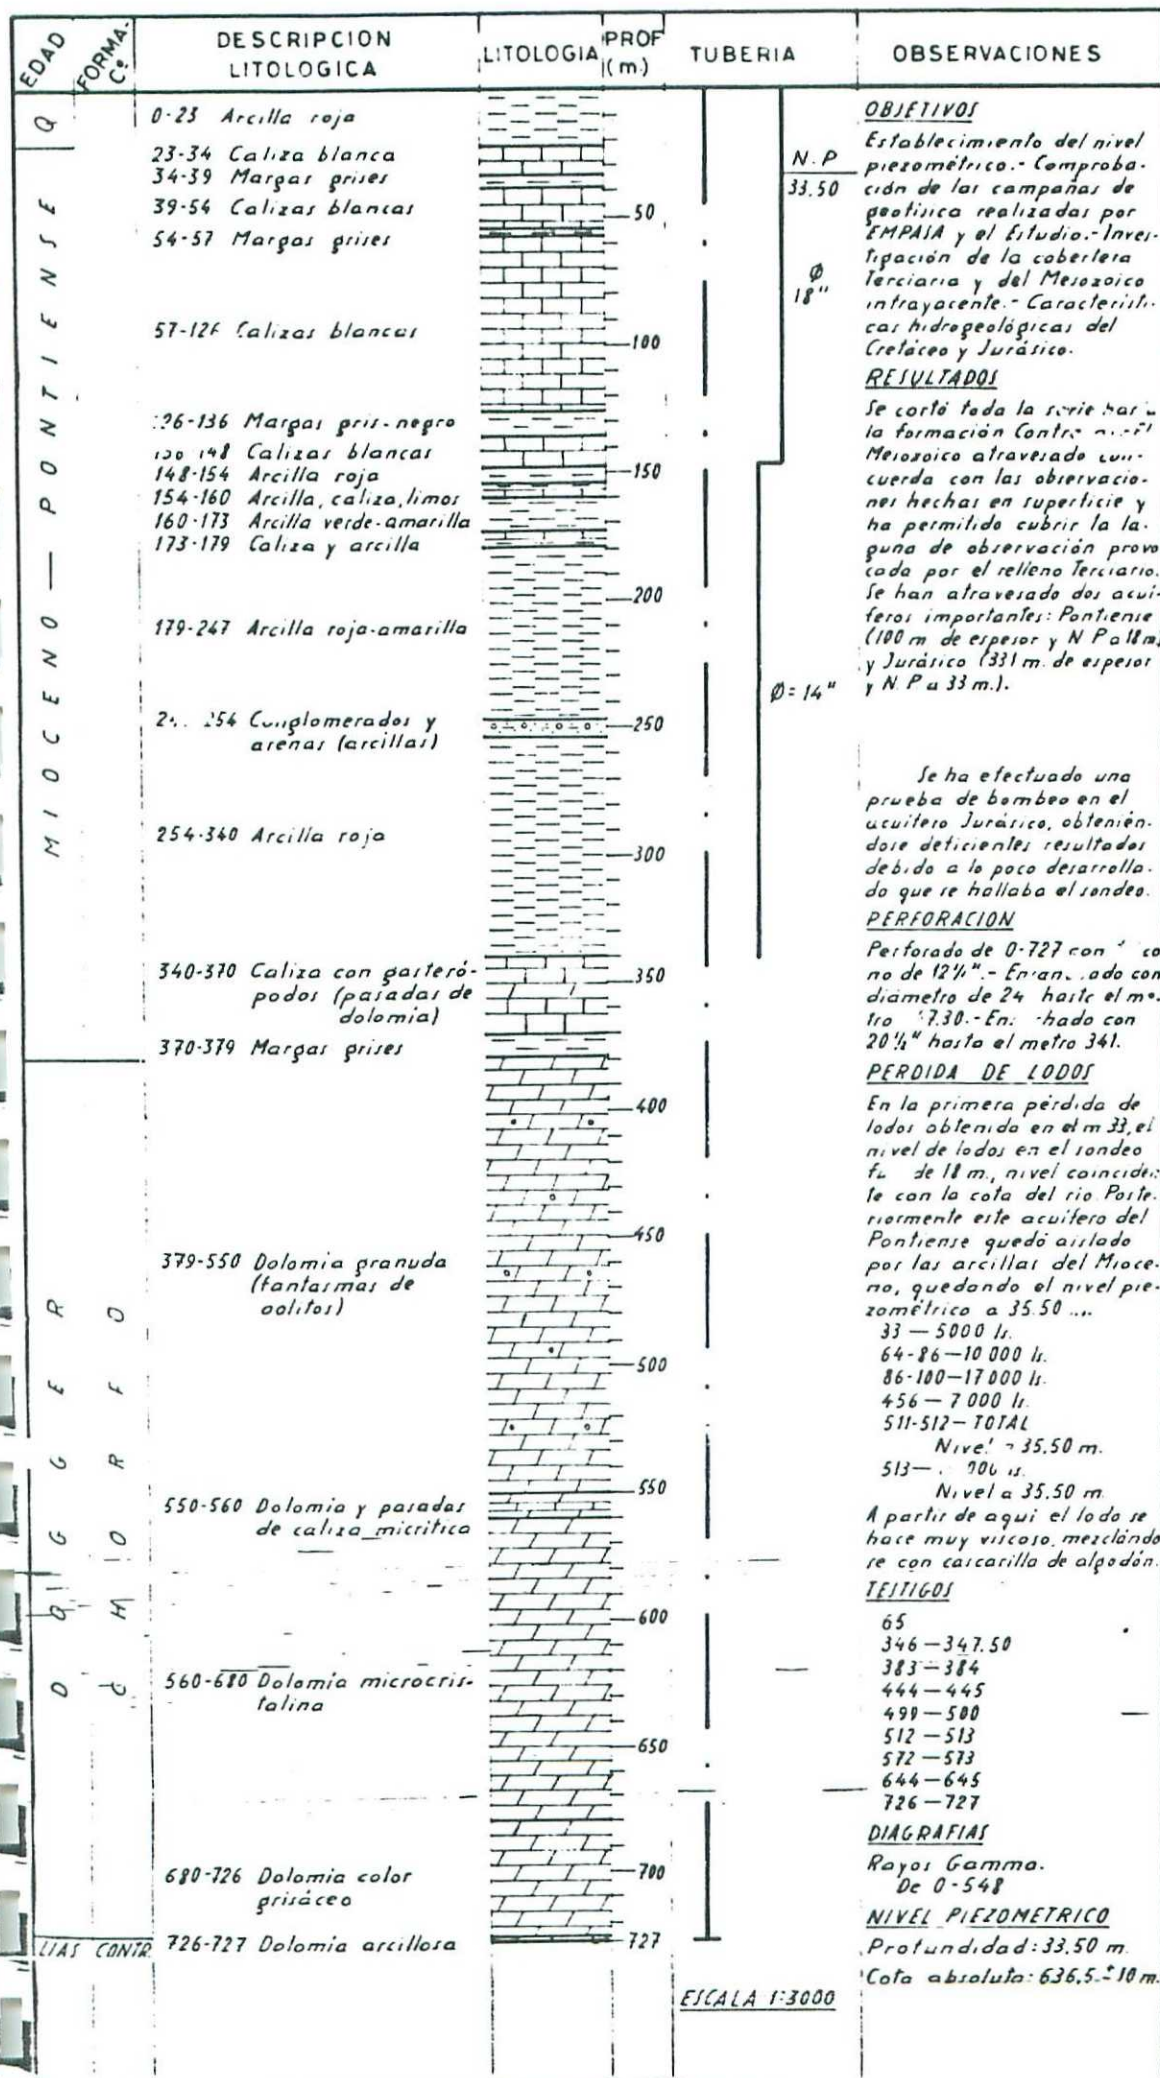 EDAD
FORMA.
Cº.
DESCRIPCION
LITOLOGICA
LITOLOGIA
PROF
(m.)
TUBERIA
OBSERVACIONES
Q
MIOCENO — PONTIENSE
DOGGER
CHORFO
LIAS CONTR.
0-23 Arcilla roja
23-34 Caliza blanca
34-39 Margas grises
39-54 Calizas blancas
54-57 Margas grises
57-126 Calizas blancas
26-136 Margas gris-negro
148 Calizas blancas
148-154 Arcilla roja
154-160 Arcilla, caliza, limos
160-173 Arcilla verde-amarilla
173-179 Caliza y arcilla
179-247 Arcilla roja-amarilla
254 Conglomerados y
arenas (arcillas)
254-340 Arcilla roja
340-370 Caliza con gasteró-
podos (pasadas de
dolomia)
370-379 Margas grises
379-550 Dolomia granuda
(fantasmas de
oolitos)
550-560 Dolomia y pasadas
de caliza micritica
560-680 Dolomia microcris-
talina
680-726 Dolomia color
grisáceo
726-727 Dolomia arcillosa
50
100
150
200
250
300
350
400
450
500
550
600
650
700
727
N.P
33.50
Ø
18"
Ø=14"
ESCALA 1:3000
OBJETIVOS
Establecimiento del nivel
piezométrico.- Comproba-
ción de las campañas de
geofísica realizadas por
EMPASA y el Estudio.- Inves-
tigación de la cobertera
Terciaria y del Mesozoico
infrayacente.- Característi-
cas hidrogeológicas del
Cretáceo y Jurásico.
RESULTADOS
Se cortó toda la serie
la formación
Mesozoico atravesado con-
cuerda con las observacio-
nes hechas en superficie y
ha permitido cubrir la la-
guna de observación provo
cada por el relleno Terciario.
Se han atravesado dos acui-
feros importantes: Pontiense
(100 m de espesor y N P a 18 m)
y Jurásico (331 m. de espesor
y N. P a 33 m.).
Se ha efectuado una
prueba de bombeo en el
acuifero Jurásico, obtenién-
dose deficientes resultados
debido a lo poco desarrolla-
do que se hallaba el sondeo.
PERFORACION
Perforado de 0-727 con co
no de 12¼".- con
diámetro de 24 haste el me-
tro 7.30.- hado con
20½" hasta el metro 341.
PERDIDA DE LODOS
En la primera pérdida de
lodos obtenida en el m 33, el
nivel de lodos en el sondeo
de 18 m., nivel coinciden-
te con la cota del rio. Poste-
riormente este acuifero del
Pontiense quedó aislado
por las arcillas del Mioce-
no, quedando el nivel pie-
zométrico a 35.50
33 — 5000 ls.
64-86 — 10 000 ls.
86-100 — 17 000 ls.
456 — 7 000 ls.
511-512 — TOTAL
Nivel a 35,50 m.
513 — ls.
Nivel a 35.50 m.
A partir de aqui el lodo se
hace muy viscoso, mezclándo
se con cascarilla de algodón.
TESTIGOS
65
346 — 347.50
383 — 384
444 — 445
499 — 500
512 — 513
572 — 573
644 — 645
726 — 727
DIAGRAFIAS
Rayos Gamma.
De 0-548
NIVEL PIEZOMETRICO
Profundidad: 33,50 m.
Cota absoluta: 636,5 ± 10 m.